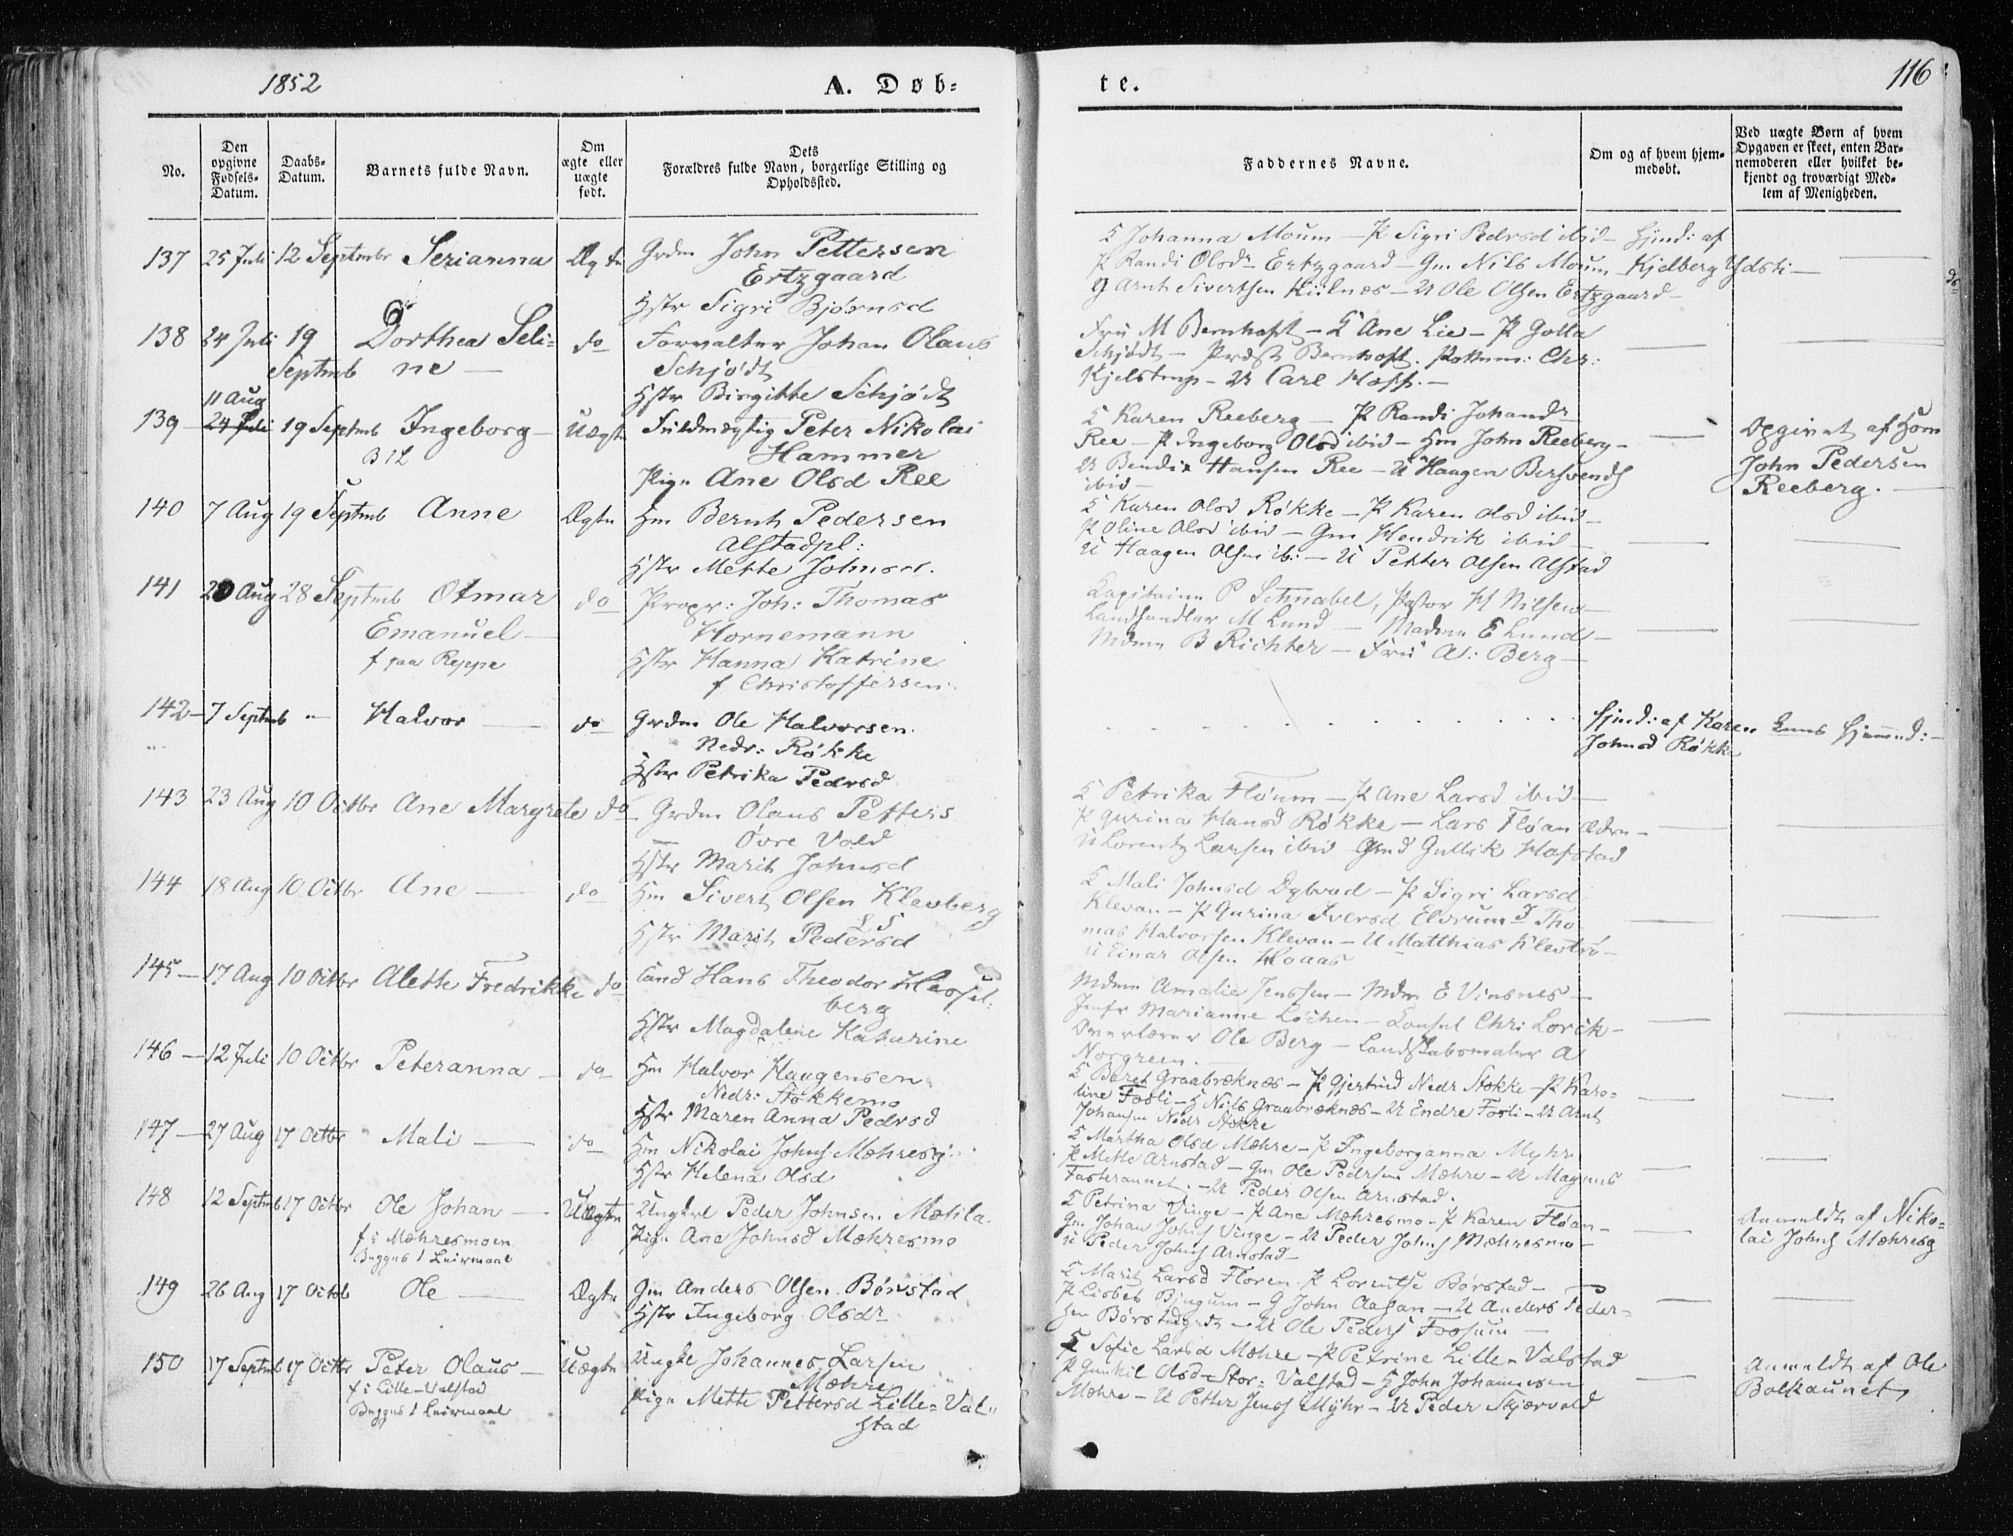 1852
A. Døb=
te.
116
No.
Den opgivne Fødsels-Datum.
Daabs-Datum.
Barnets fulde Navn.
Om ægte eller uægte født.
Dets Forældres fulde Navn, borgerlige Stilling og Opholdssted.
Faddernes Navne.
Om og af hvem hjemmedøbt.
Ved uægte Børn af hvem Opgaven er skeet, enten Barnemoderen eller hvilket bekjendt og troværdigt Medlem af Menigheden.
137 25 Juli 12 Septmbr Serianna Ægte Grdm John Pettersen
Ertzgaard
Hstr Sigri Bjørnsd
K Johanna Moum – P Sigri Pedrsd ibid – Hjmd: af
P Randi Olsdr Ertzgaard – Gm Nils Moum – Kjelberg Ydsti –
G Arnt Sivertsen Kiilnæs – U Ole Olsen Ertzgaard –
138 24 Juli 19 Dorthea Seli= do Forvalter Johan Olaus
Septmb ne – Schjødt
Hstr Birgitte Schjødt
Fru M Bernhoft – K Ane Lie – P Golla
Schjødt – Præst Bernhoft. Chr:
Kjelstrup – U Carl Hoff. –
11 Aug
139 – 24 Juli 19 Septmb Ingeborg – Uægte Fuldmægtig Peter Nikolai
B 1 L Hammer
Pige Ane Olsd Ree
K Karen Reeberg – P Randi Johandr
Ree – P Ingeborg Olsd ibid – Hm John Reeberg –
U Bendix Hansen Ree – U Haagen Bersvends
ibid –
Opgivet af Hsm
John Pedersen
Reeberg. –
140 7 Aug 19 Septmb Anne Ægte Hm Bernt Pedersen
Alstadpl:
Hstr Mette Johnsd.
K Karen Olsd Røkke – P Karen Olsd ibid –
P Oline Olsd ibid – Gm Hendrik ibid –
U Haagen Olsen ib: – U Petter Olsen Alstad
141 20 Aug 28 Septmb Otmar do Propr: Joh: Thomas
Emanuel – Hornemann
f paa Reppe Hstr Hanna Katrine
f Christoffersen.
Kapitaine P Schnabel, Pastor H Nilsen –
Landhandler M Lund – Madme E Lund –
Mdme B Richter – Fru A: Berg –
142 – 7 Septmb " Halvor – do Grdm Ole Halvorsen
Nedr: Røkke
Hstr Petrika Pedrsd
Hjmd: af Karen
Johnsd Røkke
143 23 Aug 10 Octbr Ane Margrete do Grdm Olaus Petters
Øvre Vold
Hstr Marit Johnsd
K Petrika Fløum – P Ane Larsd ibid –
P Gurina Hansd Røkke – Lars Fløan Ædru –
U Lorentz Larsen ibid – Gullik Hofstad
144 18 Aug 10 Octbr Ane – do Hm Sivert Olsen Klevberg
Hstr Marit Pedersd
K Mali Johnsd Dybvad – P Sigri Larsd
Klevan – P Gurina Iversd Elvrum Tho
mas Halvorsen Klevan – U Matthias Klevbro –
U Einar Olsen Hoaas
145 – 17 Aug 10 Octbr Alette Fredrikke do Cand Hans Theodor Hessel=
berg
Hstr Magdalene Katarine
Mdme Amalie Jenssen – Mdm E Vinsnes –
Jmfr Marianne Løchen – Konsul Chr: Lorck –
Overlærer Ole Berg – Landskabsmaler A
Norgreen. –
146 – 12 Juli 10 Octbr Peteranna – do Hm Halvor Haagensen
Nedr: Stokkemo
Hstr Maren Anna Pedrsd
K Beret Graabræknæs – P Gjertrud Nedr Stokke – P Karo=
line Fosli – G Nils Graabræknæs – U Endre Fosli – U Arnt
Johansen Nedr Stokke
147 – 27 Aug 17 Octbr Mali – do Hm Nikolai Johns Mæhresg:
Hstr Helena Olsd
K Martha Olsd Mæhre – P Ingeborganna Myhr
P Mette Arnstad – Gm Ole Pedersen Mæhre – U Magnus
Fasteraunet. – U Peder Olsen Arnstad.
148 12 Septmb 17 Octbr Ole Johan – Uægte Ungkrl Peder Johnsen Mæhla.
f i Mæhresmoen Pige Ane Johnsd Mæhresmo
Begges 1 Leiermaal
K Petrina Vinge – P Ane Mæhresmo – P Karen Fløan –
Gm Johan Johns Vinge – U Peder Johns Mæhresmo –
U Peder Johns Arnstad –
Anmeldt af Niko=
lai Johns Mæhresg
149 26 Aug 17 Octb Ole – Ægte Gm Anders Olsen Børstad
Hstr Ingeborg Olsdr
K Marit Larsd Floren. P Lorentse Børstad –
P Lisbet Bjugum – G John Aasan – U Anders Peder=
sen Børstad – U Ole Peders Fossum –
150 17 Septmb 17 Octbr Peter Olaus – Uægte Ungkl Johannes Larsen
f i Lille-Valstad Mæhre
Begges 1 Leiermaal Pige Mette Pettersd Lille=Val=
stad
K Sofie Larsd Mæhre – P Petrine Lille-Valstad
P Gunhil Olsd Stor=Valstad – G John Johannesen
Mæhre – U Petter Jenss Myhr – U Peder Skjærvold
Anmeldt af Ole
Balkaunet